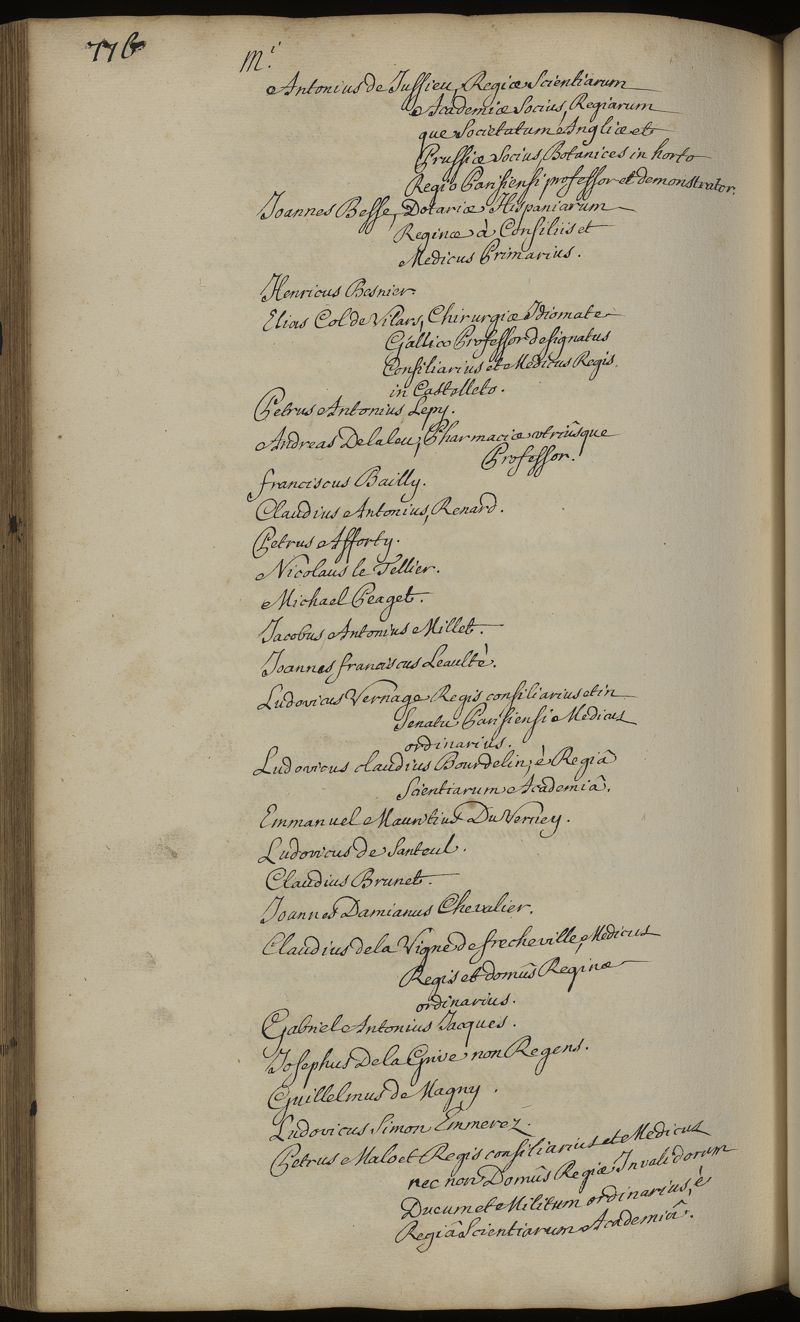 776
M.i
Antonius de Jussieu, Regiæ Scientiarum
Academiæ Socius, Regiarum
que Societatum Angliæ et
Prussiæ Socius, Botanices in horto
Regio Parisiensi professor et demonstrator.
Joannes Besse, Dotariæ Hispaniarum
Reginæ à Consiliis et
Medicus Primarius.
Henricus Besnier.
Elias Col de Vilars, Chirurgiæ Idiomate
Gallico Professor designatus
Consiliarius et Medicus Regis
in Castolleto.
Petrus Antonius Lepy.
Andreas Delaleu, Pharmaciæ utriûsque
Professor.
franciscus Bailly.
Claudius Antonius, Renard.
Petrus Afforty.
Nicolaus le Tellier.
Michael Peaget.
Jacobus Antonius Millet.
Joannes franciscus Leaulté.
Ludovicus Vernage Regis consiliarius et in
Senatu Parisiensi Medicus
ordinarius.
Ludovicus claudius Bourdelin, è Regiâ
Scientiarum Academiâ.
Emmanuel Mauritius Du Verney.
Ludovicus de Santeul.
Claudius Brunet.
Joannes Damianus Chevalier.
Claudius de la Vigne de frecheville, Medicus
Regis et domûs Reginæ
ordinarius.
Gabriel Antonius Jacques.
Josephus De la Grive non Regens.
Guillelmus de Magny.
Ludovicus Simon Emmerez.
Petrus Maloet Regis consiliarius et Medicus
nec non Domûs Regiæ Invalidorum
Ducum et Militum ordinarius, è
Regiâ Scientiarum Academiâ.